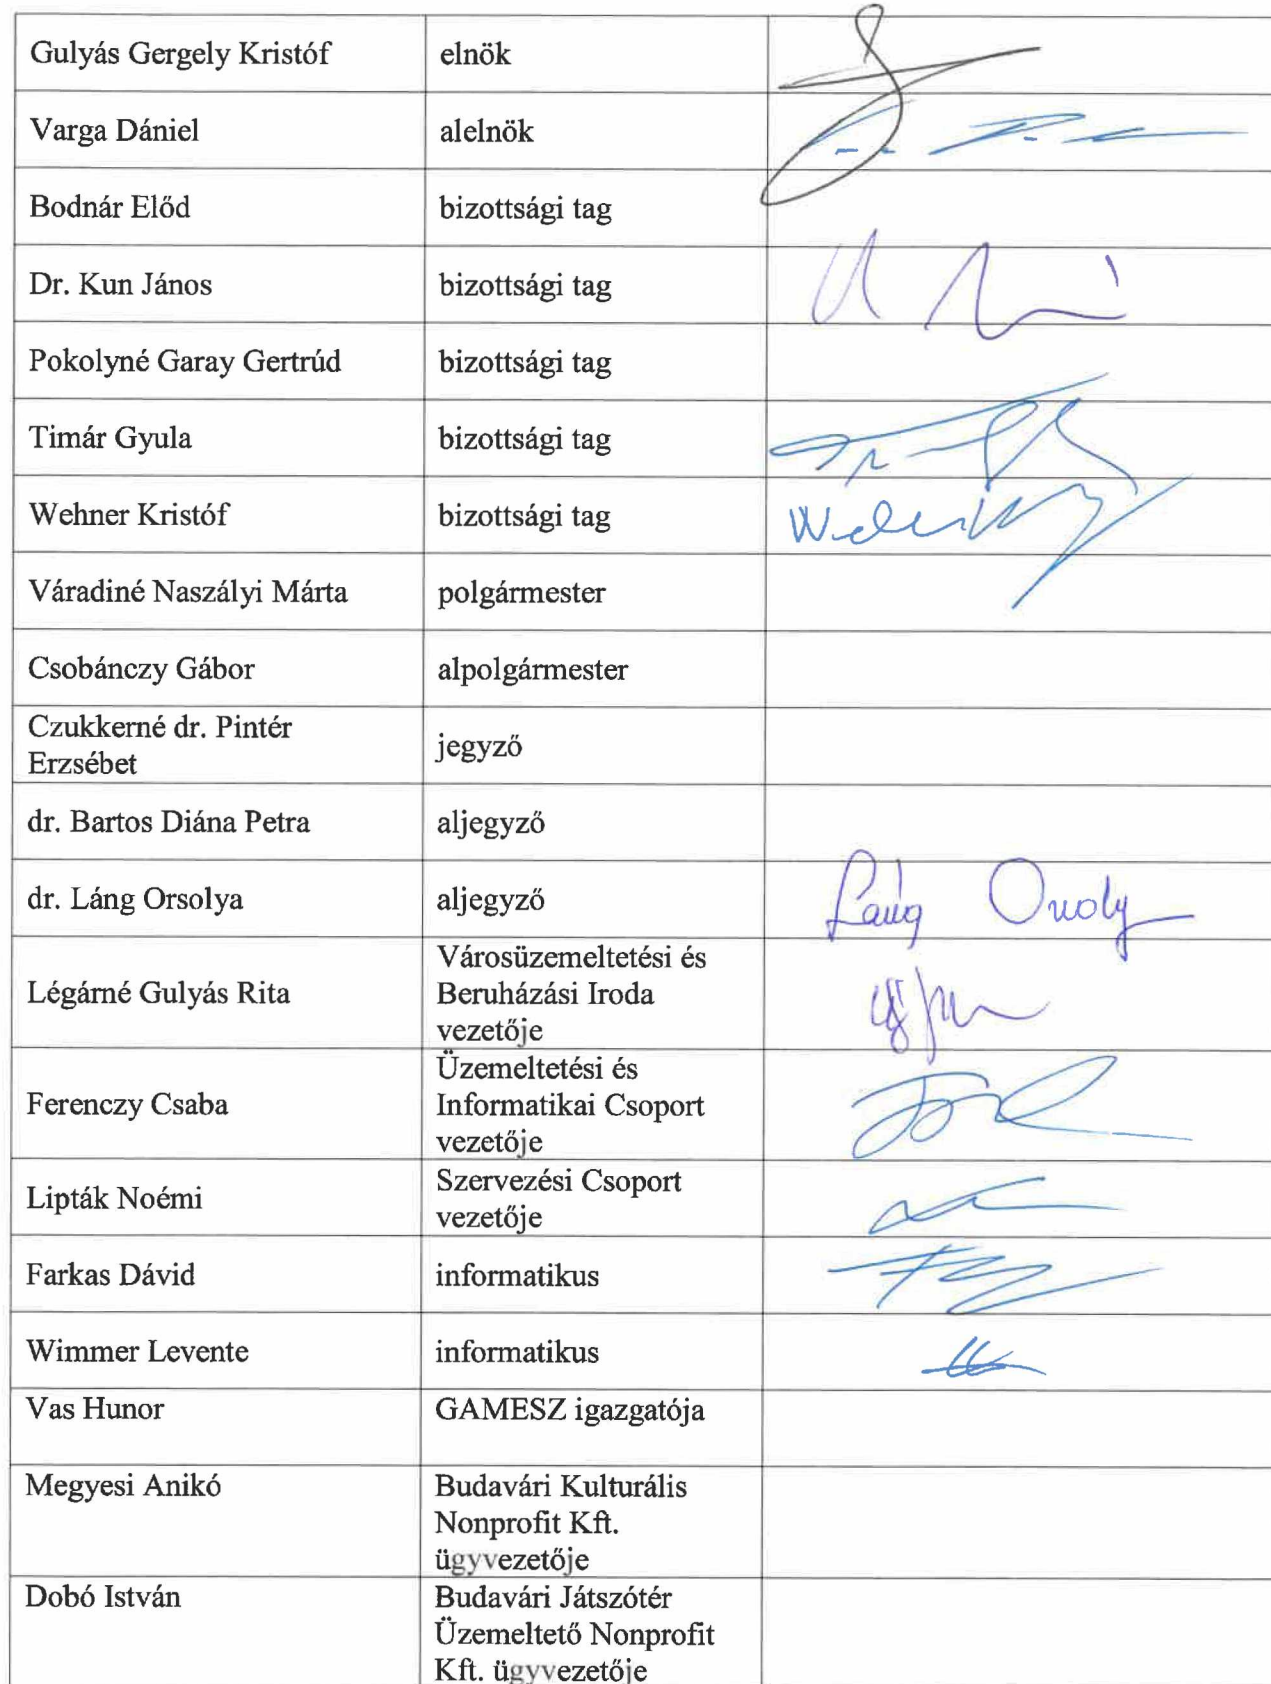 Gulyás Gergely Kristóf elnök
Varga Dániel alelnök
Bodnár Előd bizottsági tag
Dr. Kun János bizottsági tag
Pokolyné Garay Gertrúd bizottsági tag
Timár Gyula bizottsági tag
Wehner Kristóf bizottsági tag
Váradiné Naszályi Márta polgármester
Csobánczy Gábor alpolgármester
Czukkerné dr. Pintér
Erzsébet
jegyző
dr. Bartos Diána Petra aljegyző
dr. Láng Orsolya aljegyző Láng Orsolya
Légárné Gulyás Rita
Városüzemeltetési és
Beruházási Iroda
vezetője
Ferenczy Csaba
Üzemeltetési és
Informatikai Csoport
vezetője
Lipták Noémi
Szervezési Csoport
vezetője
Farkas Dávid informatikus
Wimmer Levente informatikus
Vas Hunor GAMESZ igazgatója
Megyesi Anikó
Budavári Kulturális
Nonprofit Kft.
ügyvezetője
Dobó István
Budavári Játszótér
Üzemeltető Nonprofit
Kft. ügyvezetője